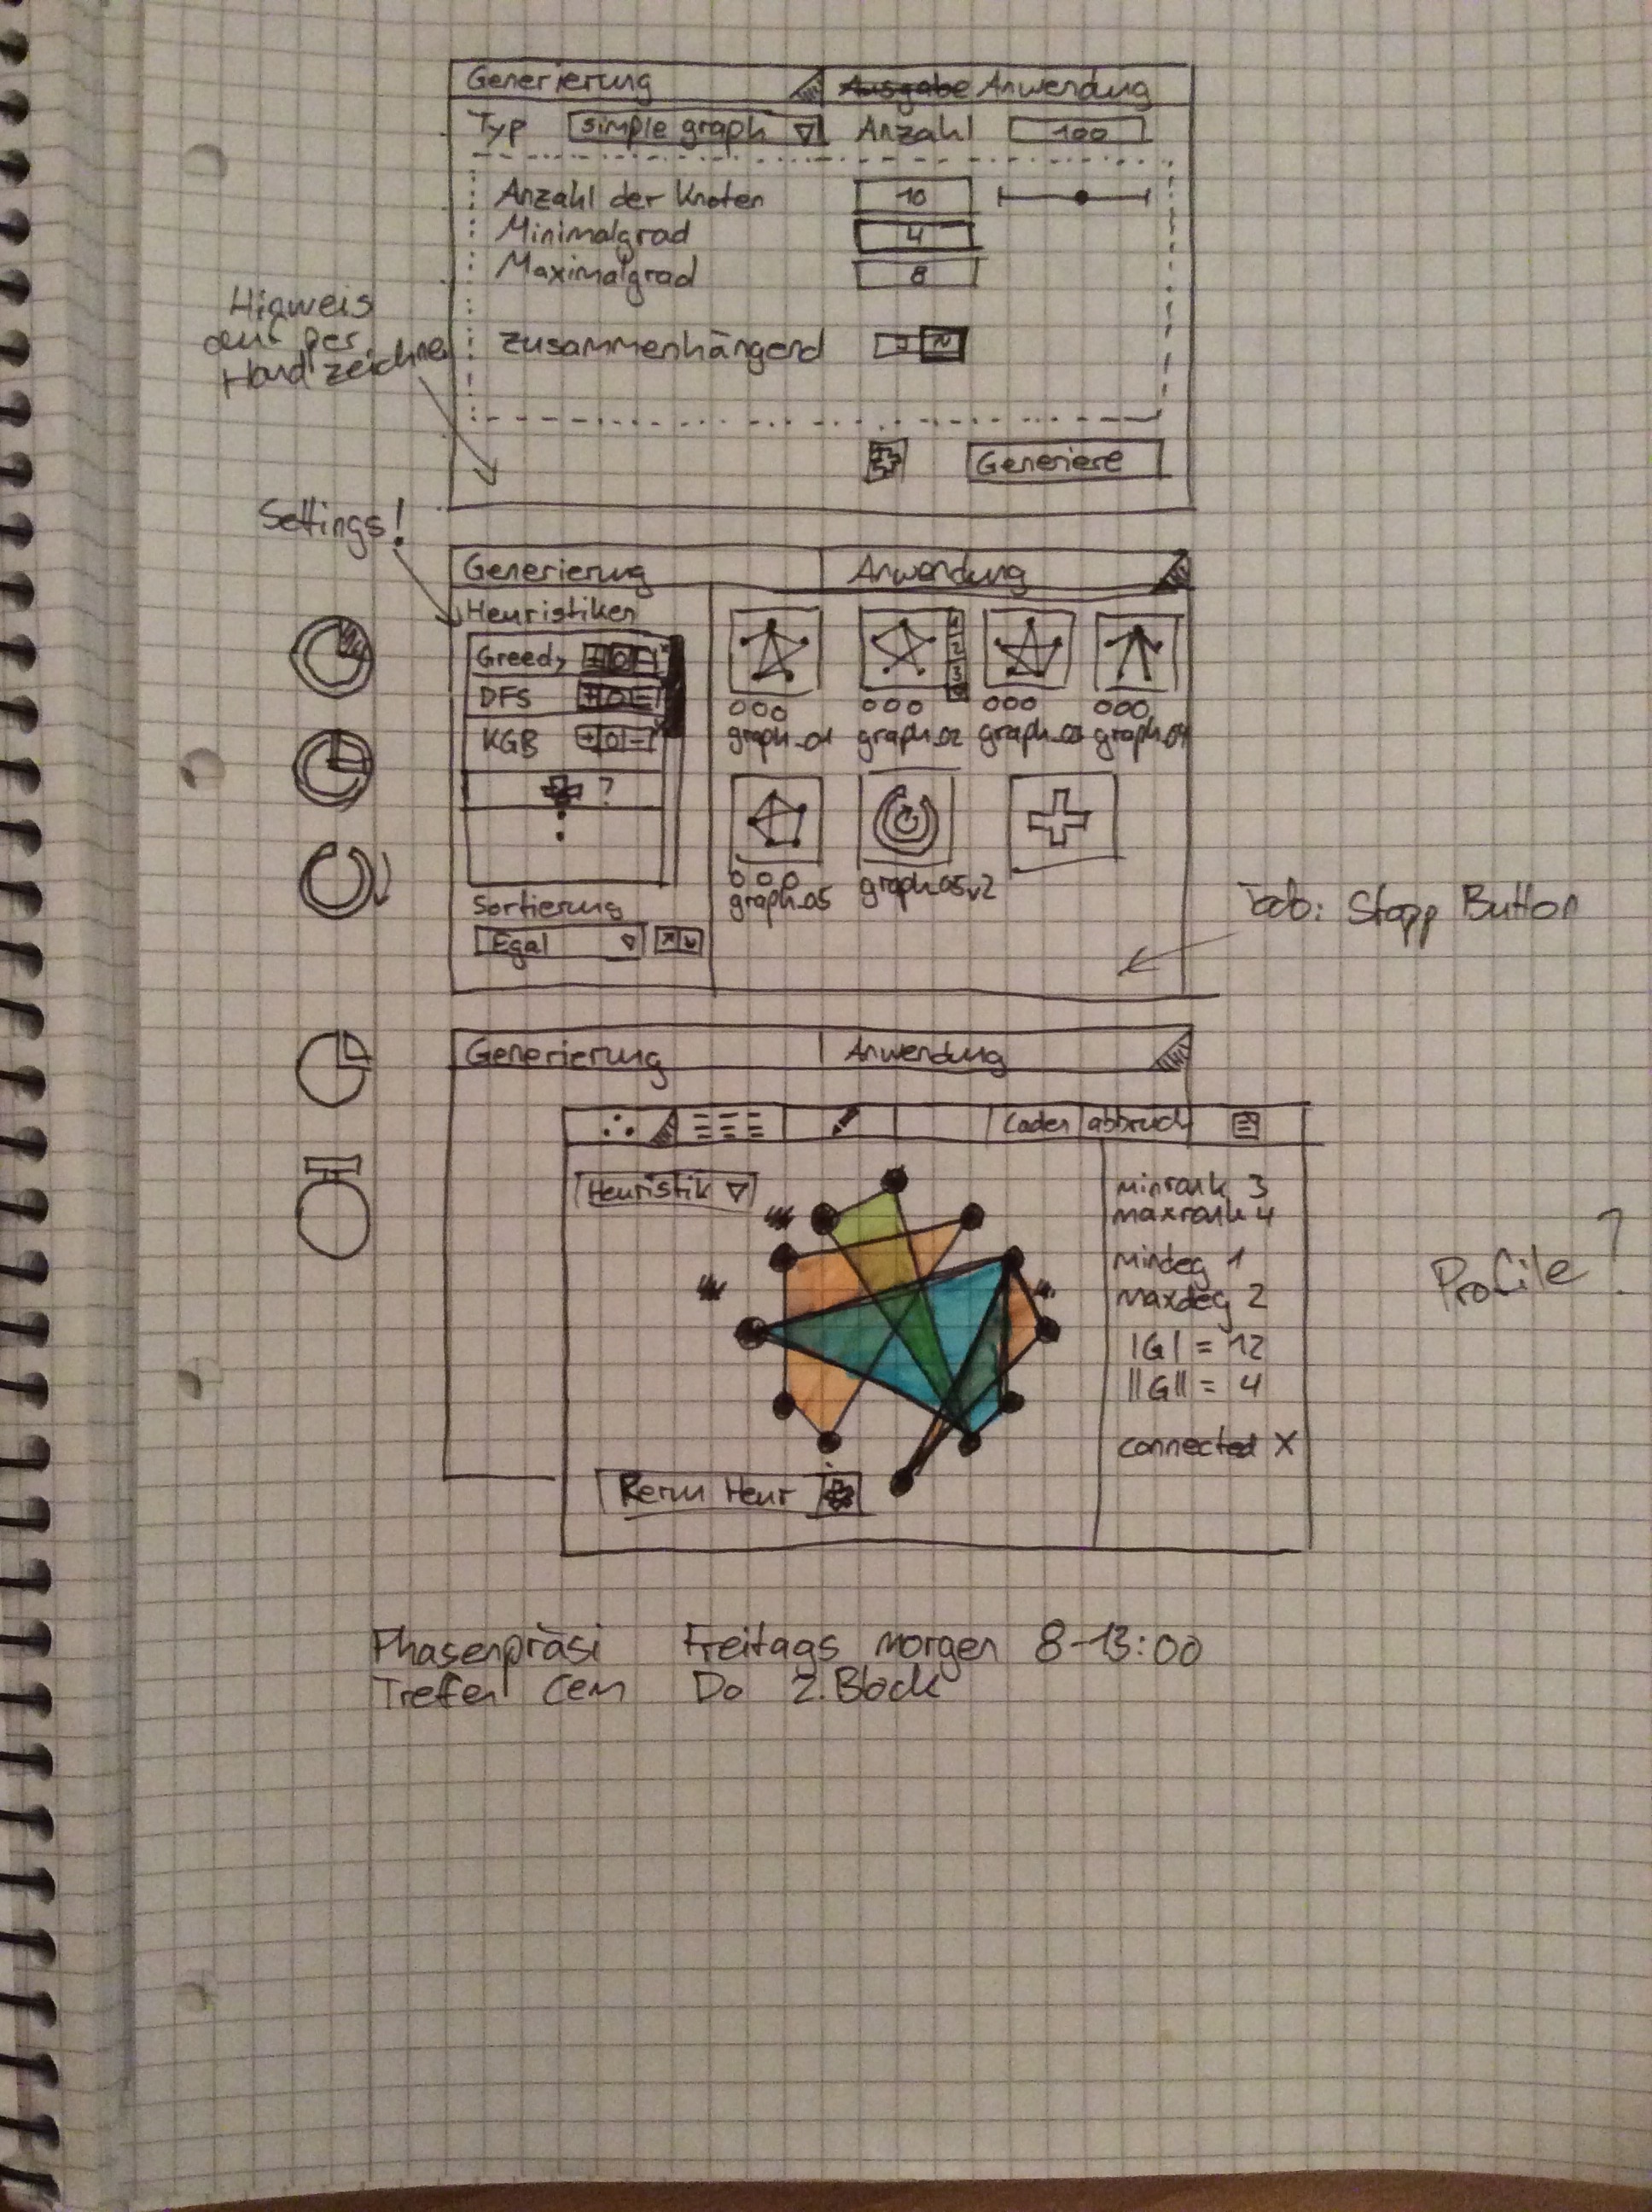 Generierung Ausgabe Anwendung
Typ simple graph Anzahl 100
Anzahl der Knoten 10
Minimalgrad 4
Maximalgrad 8
zusammenhängend J N
Generiere
Hinweis
auf per
Hand zeichnen
Settings!
Generierung Anwendung
Heuristiken
Greedy + O -
DFS + O -
KGB + O -
?
Sortierung
Egal
1
2
3
graph_01 graph_02 graph_03 graph_04
graph_05 graph_05v2
Todo: Stopp Button
Generierung Anwendung
Laden abbruch
Heuristik
minrank 3
maxrank 4
mindeg 1
maxdeg 2
|G| = 12
||G|| = 4
connected X
Rerun Heur
Profile?
Phasenpräsi Freitags morgen 8-13:00
Treffen Cem Do 2.Block